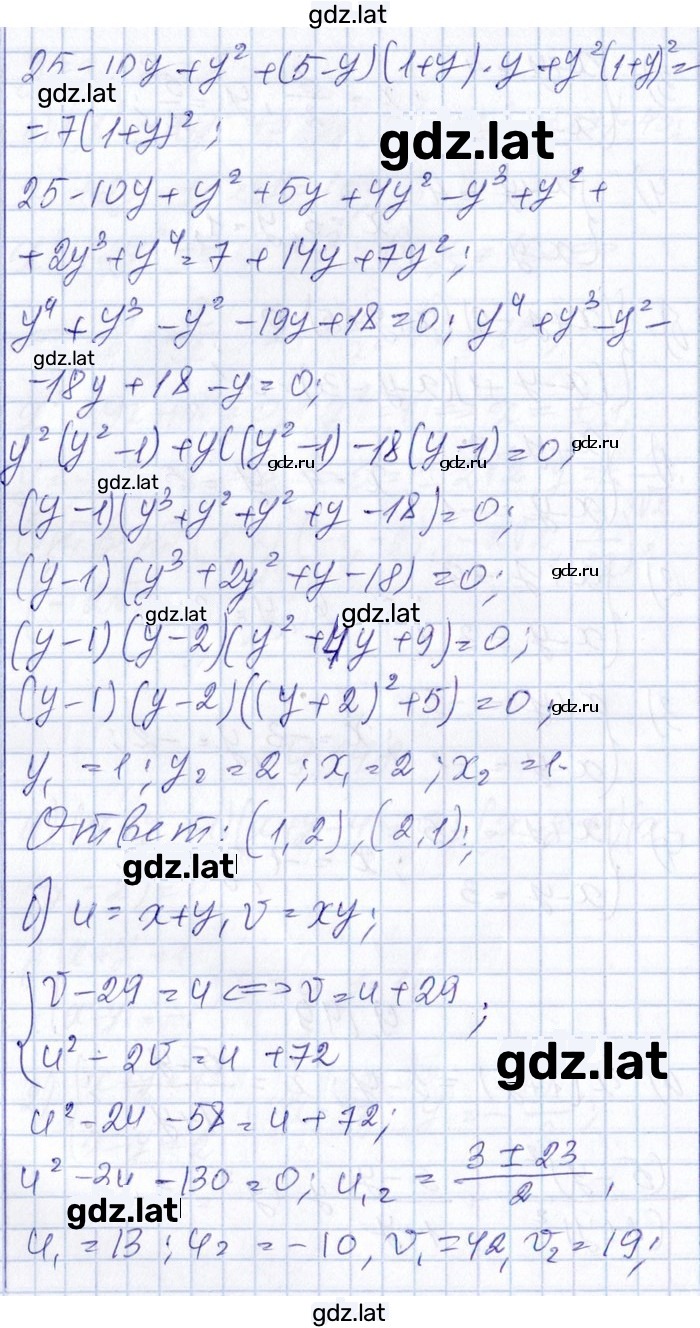 gdz.lat
25-10y+y²+(5-y)(1+y)·y+y²(1+y)²=
gdz.lat
=7(1+y)²;
gdz.lat
25-10y+y²+5y+4y²-y³+y²+
+2y³+y⁴=7+14y+7y²;
y⁴+y³-y²-19y+18=0; y⁴+y³-y²-
gdz.lat
-18y+18-y=0;
y²(y²-1)+y((y²-1)-18(y-1)=0;
gdz.ru gdz.ru gdz.ru
gdz.lat
(y-1)(y³+y²+y²+y-18)=0;
(y-1)(y³+2y²+y-18)=0;
gdz.ru
gdz.lat gdz.lat
(y-1)(y-2)(y²+4y+9)=0;
(y-1)(y-2)((y+2)²+5)=0;
gdz.ru
y₁=1; y₂=2; x₁=2; x₂=1.
Ответ: (1,2),(2,1);
gdz.lat
б) u=x+y, v=xy;
{v-29=u<=>v=u+29
u²-2v=u+72;
gdz.lat
u²-2u-58=u+72;
u²-3u-130=0; u₁,₂=(3±23)/2,
gdz.lat
u₁=13; u₂=-10, v₁=42, v₂=19;
gdz.lat